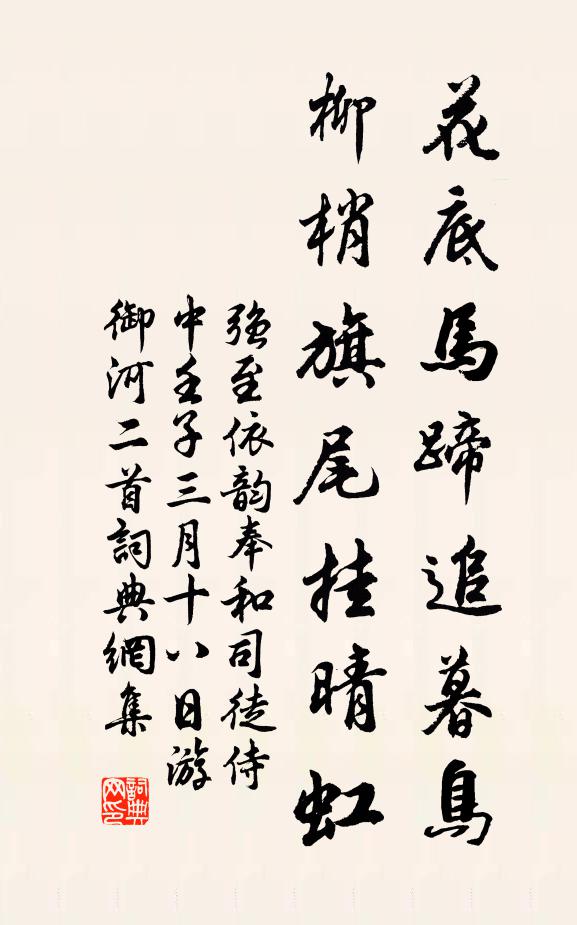 花底馬蹄追暮鳥
柳梢旗尾挂晴虹
強至依韵奉和司徒侍
中壬子三月十八日游
御河二首詞典網集
詞典
网印